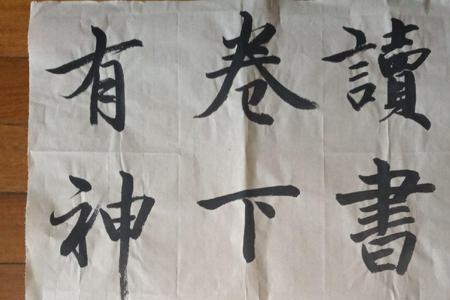 讀書
卷下
有神